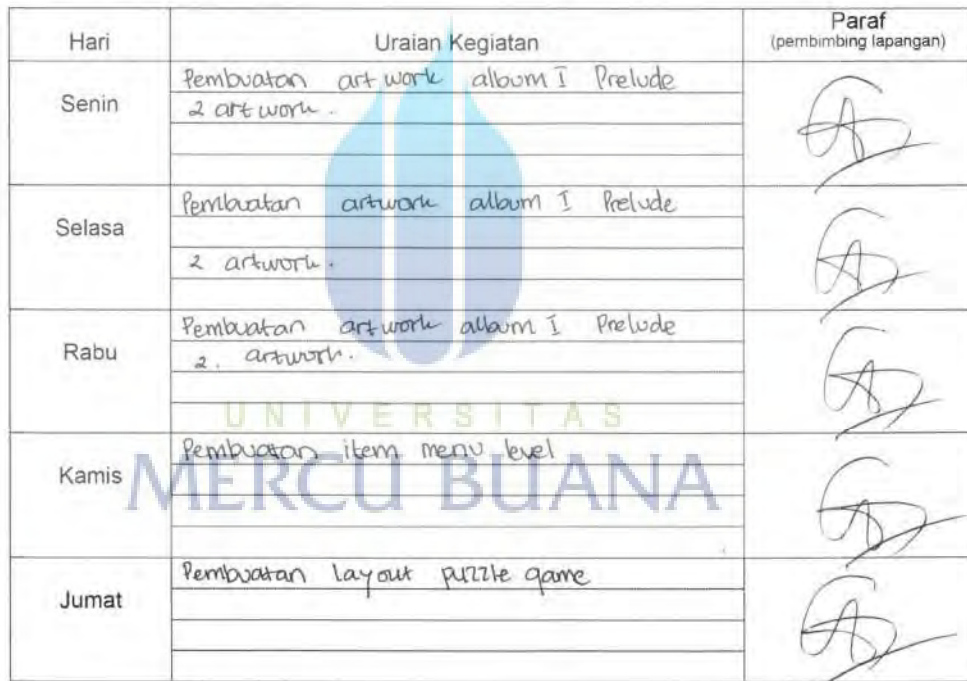 Hari Uraian Kegiatan Paraf
(pembimbing lapangan)
Senin
Pembuatan artwork album I Prelude
2 artwork.
Selasa
Pembuatan artwork album I Prelude
2 artwork.
Rabu
Pembuatan artwork album I Prelude
2. artwork.
UNIVERSITAS
MERCU BUANA
Kamis
Pembuatan item menu level
Jumat
Pembuatan layout puzzle game